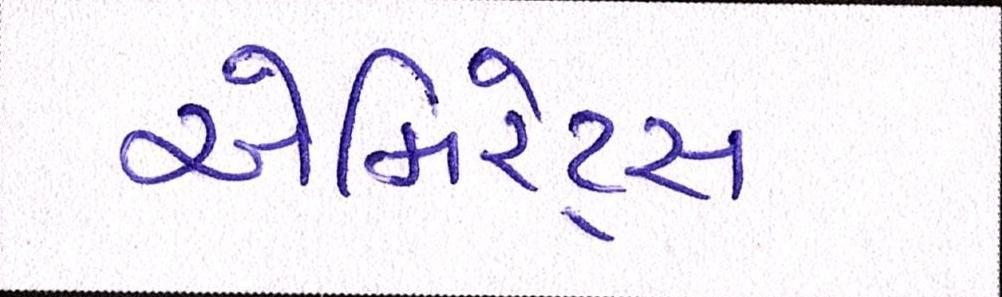 એમિરેટ્સ